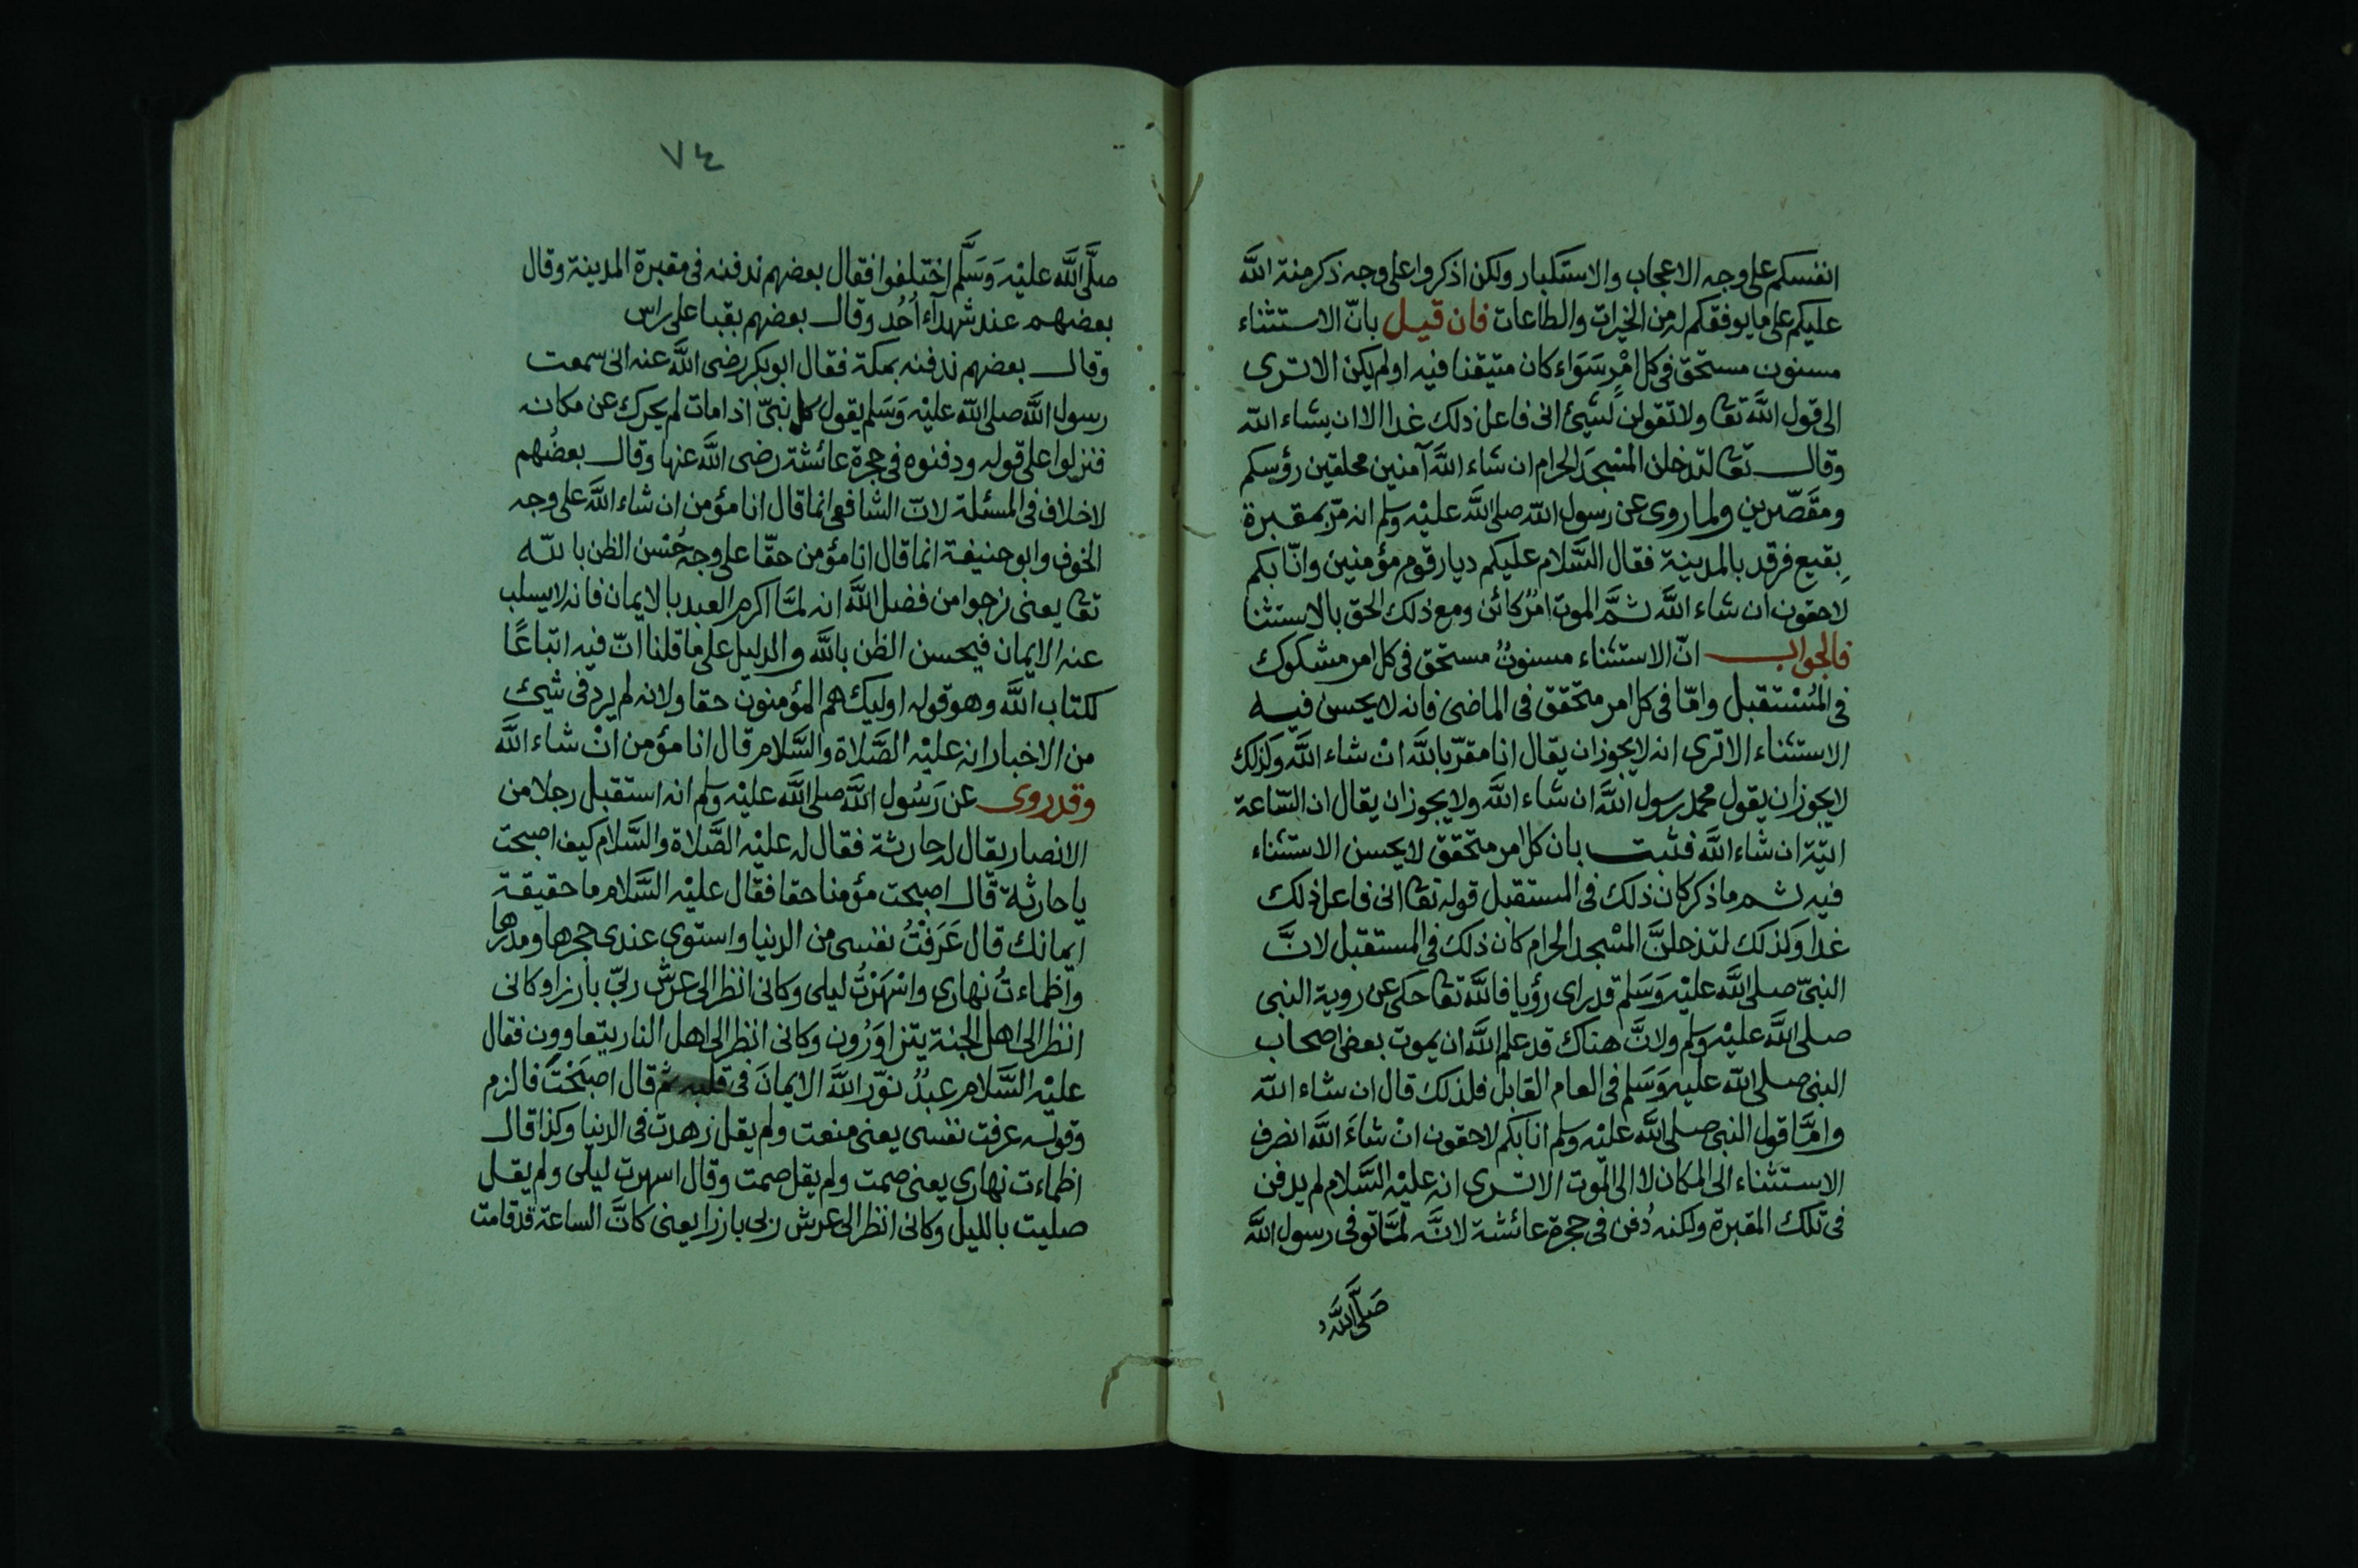 انفسكم على وجه الاعجاب والاستكبار ولكن اذكروا على وجه ذكر منة اللّه
عليكم على ما يوفقكم له من الخيرات والطاعات فان قيل بانّ الاستثناء
مسنون مستحق فى كل امْرٍ سَوَاء كان متيقنا فيه او لم يكن الا ترى
الى قول اللّه تعا ولا تقولن لشيئ انى فاعل ذلك غدا الا ان يشاء اللّه
وقال تعا لتدخلن المسْجدَ الحرام ان شاء اللّه آمنين محلقين رؤسكم
ومقَصّرين ولما روى عن رسول اللّه صلى اللّه عليْه وسلم انه مرّ بمقبرة
بِقيع فرقد بالمدينة فقال السَّلام عليكم ديار قوم مؤمنين وانّا بكم
لاحقون ان شاء اللّه ثمَّ الموت امْرٌ كائن ومع ذلك الحق بالاستثنا
فالجواب انّ الاستثناء مسنونٌ مستحق فى كل امر مشكوك
فى المُسْتقبل وامّا فى كل امر متحقق فى الماضى فانه لا يحسن فيه
الاستثناء الا ترى انه لا يجوز ان يقال انا مقرّ باللّه انْ شاء اللّه وكذلك
لا يجوز ان يقول محمد رسول اللّه ان شاء اللّه ولا يجوز ان يقال ان السّاعة
اتية ان شاء اللّه فثبت بان كل امر متحقق لا يحسن الاستثناء
فيه ثم ما ذكر كان ذلك فى المستقبل قوله تعا انى فاعل ذلك
غدا وَكذلك لتدخلنَّ المسْجد الحرام كان ذلك فى المستقبل لانَّ
النبىّ صلى اللّه عليْه وَسَلم قد راى رؤيا فاللّه تعا حكى عن روية النبى
صلى اللّه عليْه وسلم ولانَّ هناك قد علم اللّه ان يموت بعض اصحاب
النبى صلى اللّه عليْه وَسَلم فى العام القابل فلذلك قال ان شاء اللّه
وامّا قول النبى صلى اللّه عليْه وسلم انا بكم لاحقون انْ شاءَ اللّه انصرف
الاستثناء الى المكان لا الى الموت الا ترى انه عليْه السَّلام لم يدفن
فى تلك المقبرة ولكنه دُفن فى حجرة عائشة لانَّه لمَّا توفى رسول اللّه
صَلَّى اللّه
٧٤
صلَّى اللّه عليْه وَسَلَّم اختلفوا فقال بعضهم ندفنه فى مقبرة المدينة وقال
بعضهم عند شهدآء اُحُد وقال بعضهم بقبا على راس
وقال بعضهم ندفنه بمكة فقال ابو بكر رضى اللّه عنه انى سمعت
رسول اللّه صلى اللّه عليْه وَسَلم يقول كل نبىّ اذا مات لم يحرك عن مكانه
فنزلوا على قوله ودفنوه فى حجرة عائشة رضى اللّه عنها وقال بعضُهم
لا خلاف فى المسئلة لانّ الشافعى انما قال انا مؤمن ان شاء اللّه على وجه
الخوف وابو حنيفة انما قال انا مؤمن حقّا على وجه حُسْن الظن باللّه
تعا يعنى نرجوا من فضل اللّه انه لمَّا اكرم العبد بالايمان فانه لا يسلب
عنه الايمان فيحسن الظن باللّه والدليل على ما قلنا انّ فيه اتباعًا
لكتاب اللّه وهو قوله اوليك هم المؤمنون حقا ولانه لم يرد فى شيئ
من الاخبار انه عليْه الصَّلاة والسَّلام قال انا مؤمن انْ شاء اللّه
وقد روى عن رَسُول اللّه صلى اللّه عليْه وسلم انه استقبل رجلا من
الانصار يقال له حارثة فقال له عليْه الصَّلاة والسَّلام كيف اصبحت
يا حارثة قال اصبحت مؤمنا حقا فقال عليْه السَّلام ما حقيقة
ايمانك قال عَرَفْتُ نفسى من الدنيا واستوى عندى حجرها ومدرها
واظماءتُ نهارى واسْهَرْتُ ليلى وكانى انظر الى عرش ربّى بارزا وكانى
انظر الى اهل الجنة يتزاوَرُون وكانى انظر الى اهل النار يتعاوون فقال
عليْه السَّلام عبدٌ نوّر اللّه الايمانَ فى قلبه ثم قال اصبَحْتَ فالزم
وقوله عرفت نفسى يعنى منعت ولم يقل زهدت فى الدنيا وكذا قال
اظماءت نهارى يعنى صمت ولم يقل صمت وقال اسهرت ليلى ولم يقل
صليت بالليل وكانى انظر الى عرش ربى بارزا يعنى كانَّ الساعة قد قامت